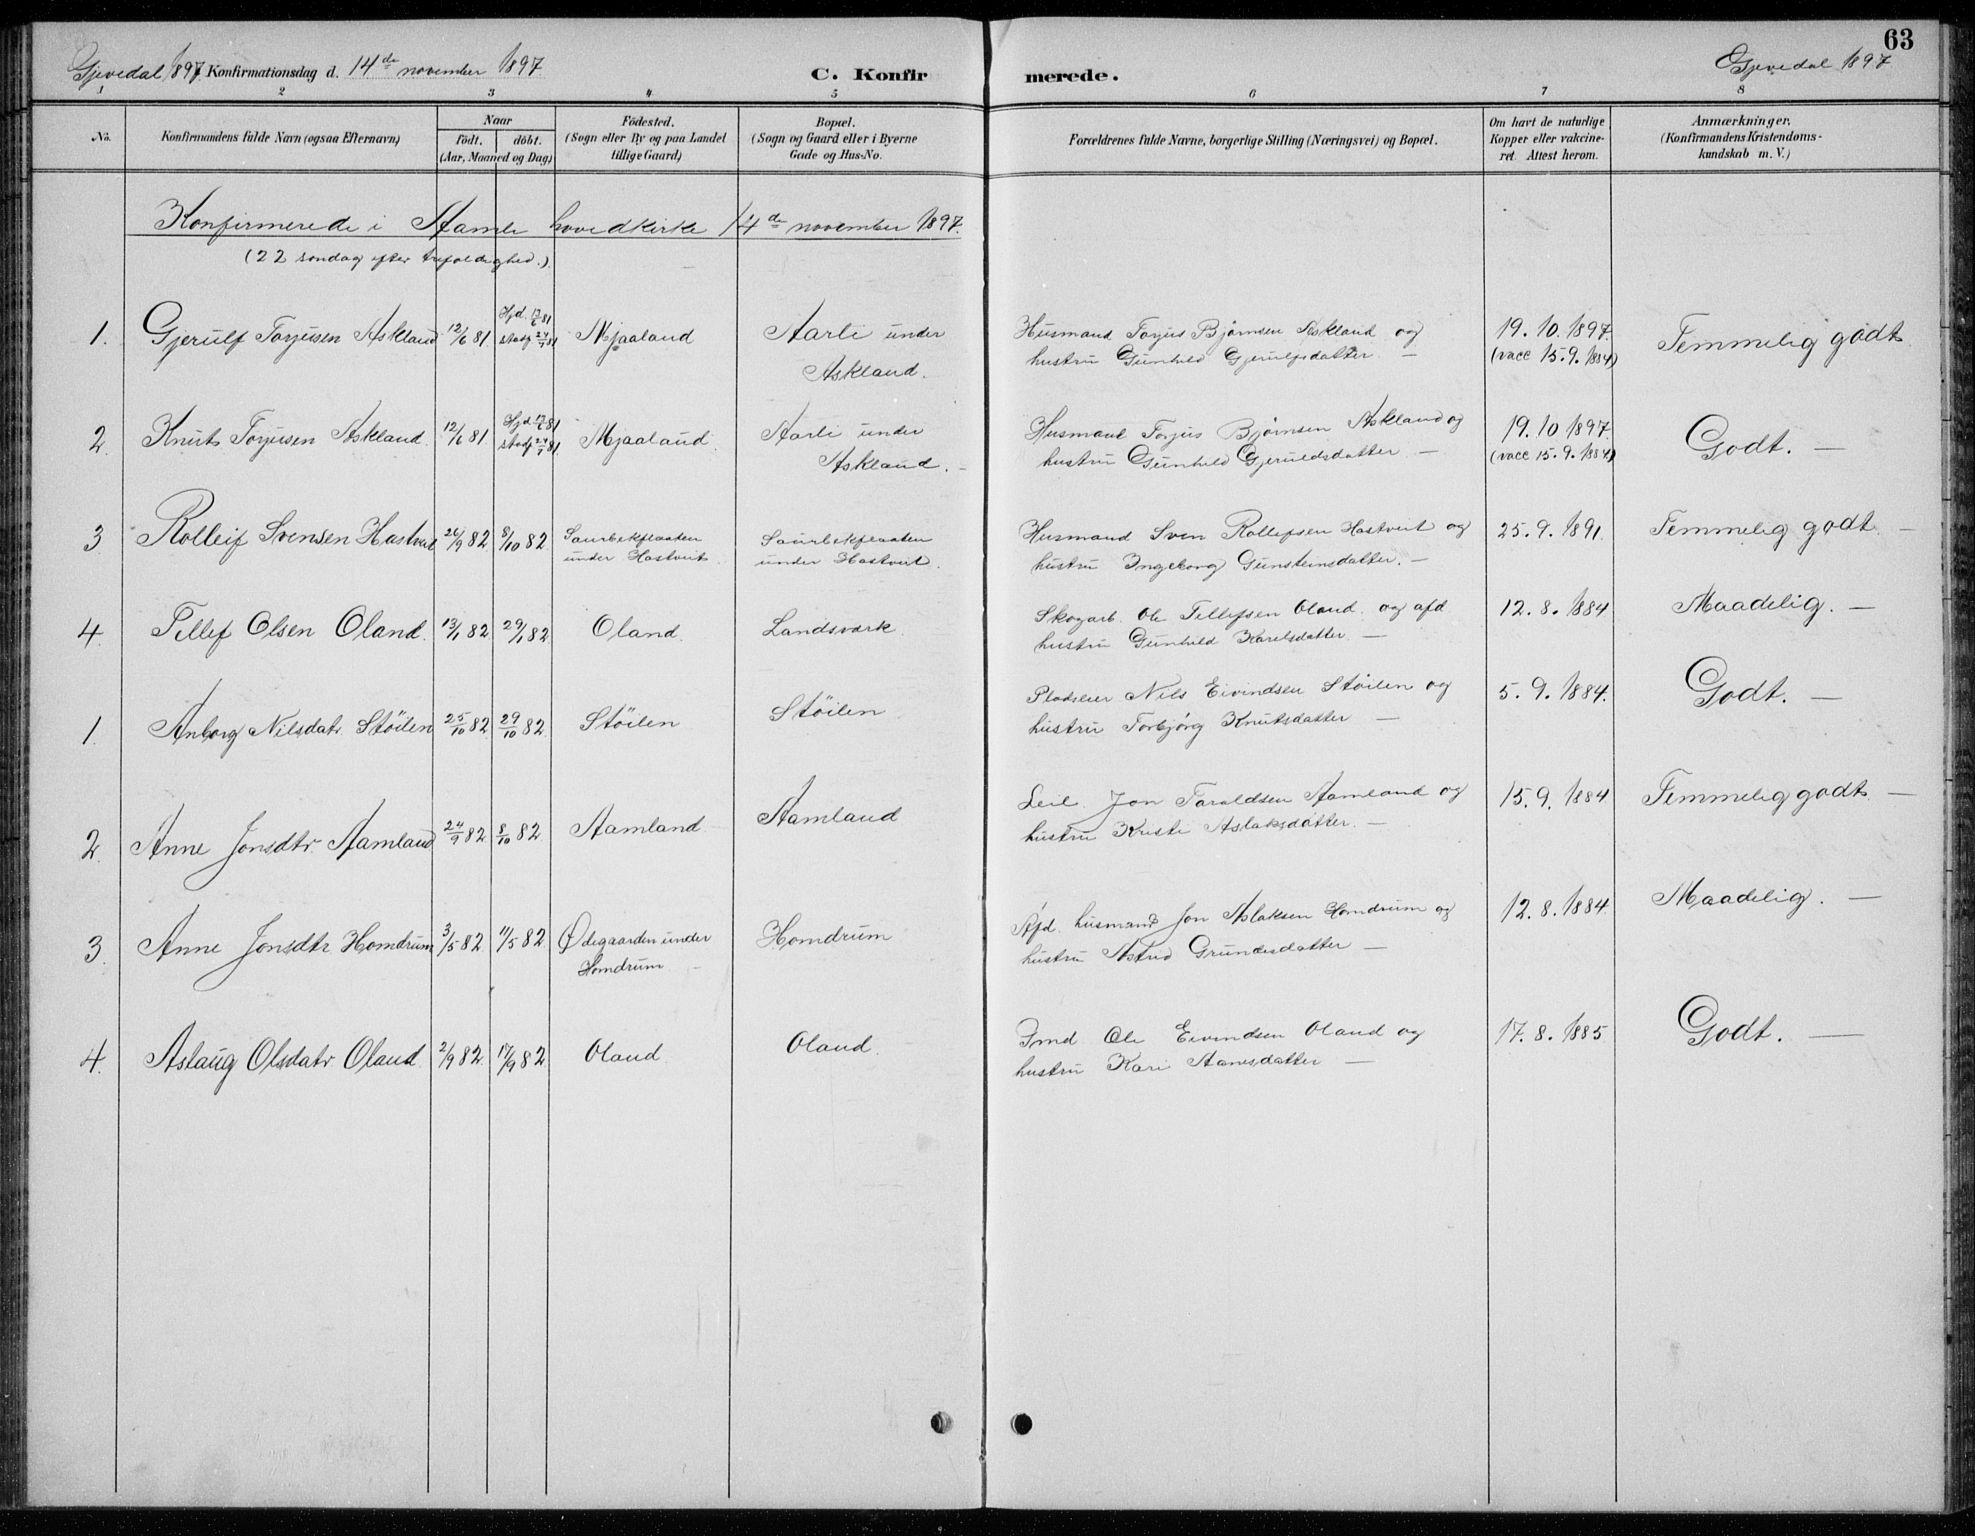 63
Gjevedal 1897. Konfirmationsdag d. 14de november 1897 C. Konfirmerede. Gjevedal 1897
1 2 3 4 5 6 7 8
No. Konfirmandens fulde Navn (ogsaa Efternavn) Naar født. døbt. (Aar, Maaned og Dag) Fødested. (Sogn eller By og paa Landet tillige Gaard) Bopæl. (Sogn og Gaard eller i Byerne Gade og Hus-No. Forældrenes fulde Navne, borgerlige Stilling (Næringsvei) og Bopæl. Om havt de naturlige Kopper eller vakcineret. Attest herom. Anmærkninger. (Konfirmandens Kristendomskundskab m. V.)
Konfirmerede i Aamli hovedkirke 14de november 1897.
(22 søndag efter trefoldighed.)
1. Gjerulf Torjusen Askland 12/6 81. Hjd. 12/6 81 stadf 24/7 81 Mjaaland Aarli under Husmand Torjus Bjørnsen Askland og 19. 10. 1897. Temmelig godt.
Askland. hustru Gunhild Gjerulfsdatter — (vacc 15. 9. 1884)
2. Knut Torjusen Askland. 12/6 81. Hjd 12/6 81 stadf 24/7 81 Mjaaland. Aarli under Husmand Torjus Bjørnsen Askland og 19. 10 1897. Godt. —
Askland. — hustru Gunhild Gjeruldsdatter — (vacc 15. 9. 1884)
3 Rolleif Svensen Hastveit 26/9 82 8/10 82 Saurbekflaaten Saurbekflaaten Husmand Sven Rollefsen Hastveit og 25. 9. 1891. Temmelig godt —
under Hastveit. under Hastveit. hustru Ingeborg Gunsteinsdatter. —
4. Tellef Olsen Oland. 13/1 82 29/1 82. Oland. Landsværk. Skogarb. Ole Tellefsen Oland. og afd 12. 8. 1884 Maadelig. —
hustru Gunhild Karelsdatter —
1. Anborg Nilsdatr. Støilen 25/10 82 29/10 82 Støilen Støilen Pladseier Nils Eivindsen Støilen og 5. 9. 1884. Godt. —
hustru Torbjørg Knutsdatter —
2. Anne Jonsdtr. Aamland 24/9 82 8/10 82 Aamland Aamland Leil. Jon Taraldsen Aamland og 15. 9. 1884 Temmelig godt —
hustru Kristi Aslaksdatter. —
3. Anne Jonsdtr Homdrum 3/5 82 11/5 82 Ødegaarden under Homdrum Afd. husmand Jon Aslaksen Homdrum og 12. 8. 1884 Maadelig. —
Homdrum — hustru Astrid Grundesdatter —
4. Aslaug Olsdatr Oland. 2/9 82 17/9 82 Oland. Oland. Gmd Ole Eivindsen Oland og 17. 8. 1885 Godt. —
hustru Kari Aanesdatter —